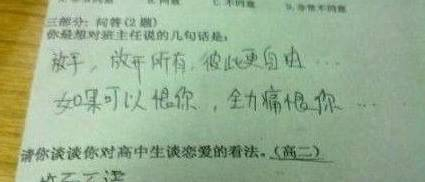 C.不同意
三部分：问答(2题)
你最想对班主任说的几句话是：
放手，放开所有，彼此更自由…
如果可以恨你，全力痛恨你…
请你谈谈你对高中生谈恋爱的看法。(高二)